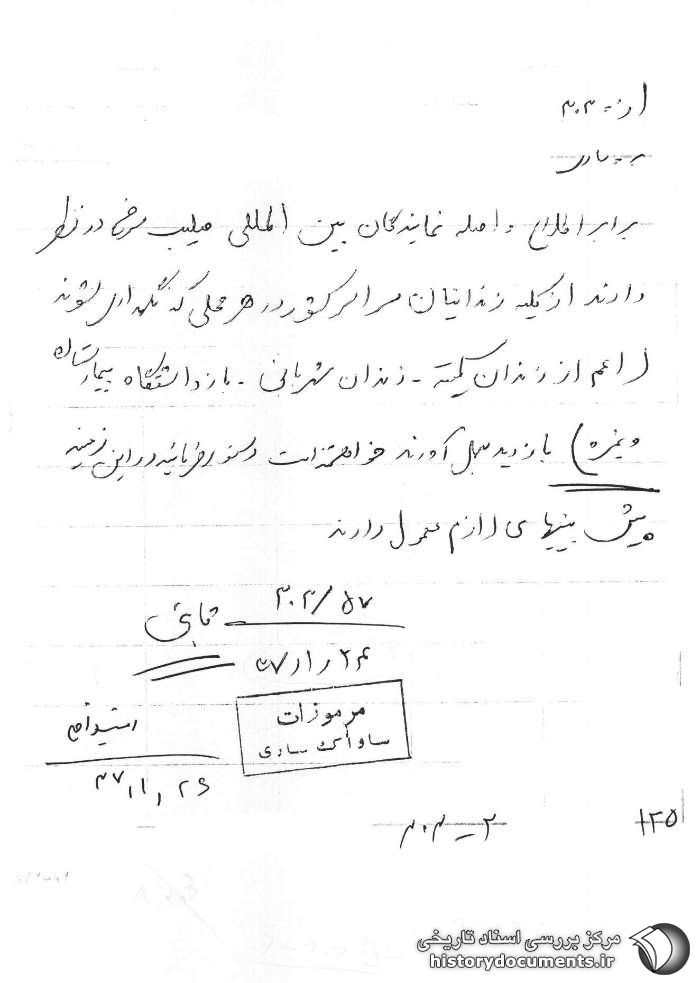 از ۳۰۳
به ساری
برابر اطلاع واصله نمایندگان بین المللی صلیب سرخ در نظر
دارند از کلیه زندانیان سراسر کشور در هر محلی که نگهداری میشوند
(اعم از زندان کمیته - زندان شهربانی - بازداشتگاه بیمارستان
ویژه) بازدید بعمل آورند خواهشمند است دستور فرمائید در این زمینه
پیش بینیهای لازم معمول دارند
۳۰۳/۵۷
۵۷/۱/۲۴
مرموزات
ساواک ساری
۳۷/۱/۲۶
۱۲۵
۲ - ۳۰۳
مرکز بررسی اسناد تاریخی
historydocuments.ir